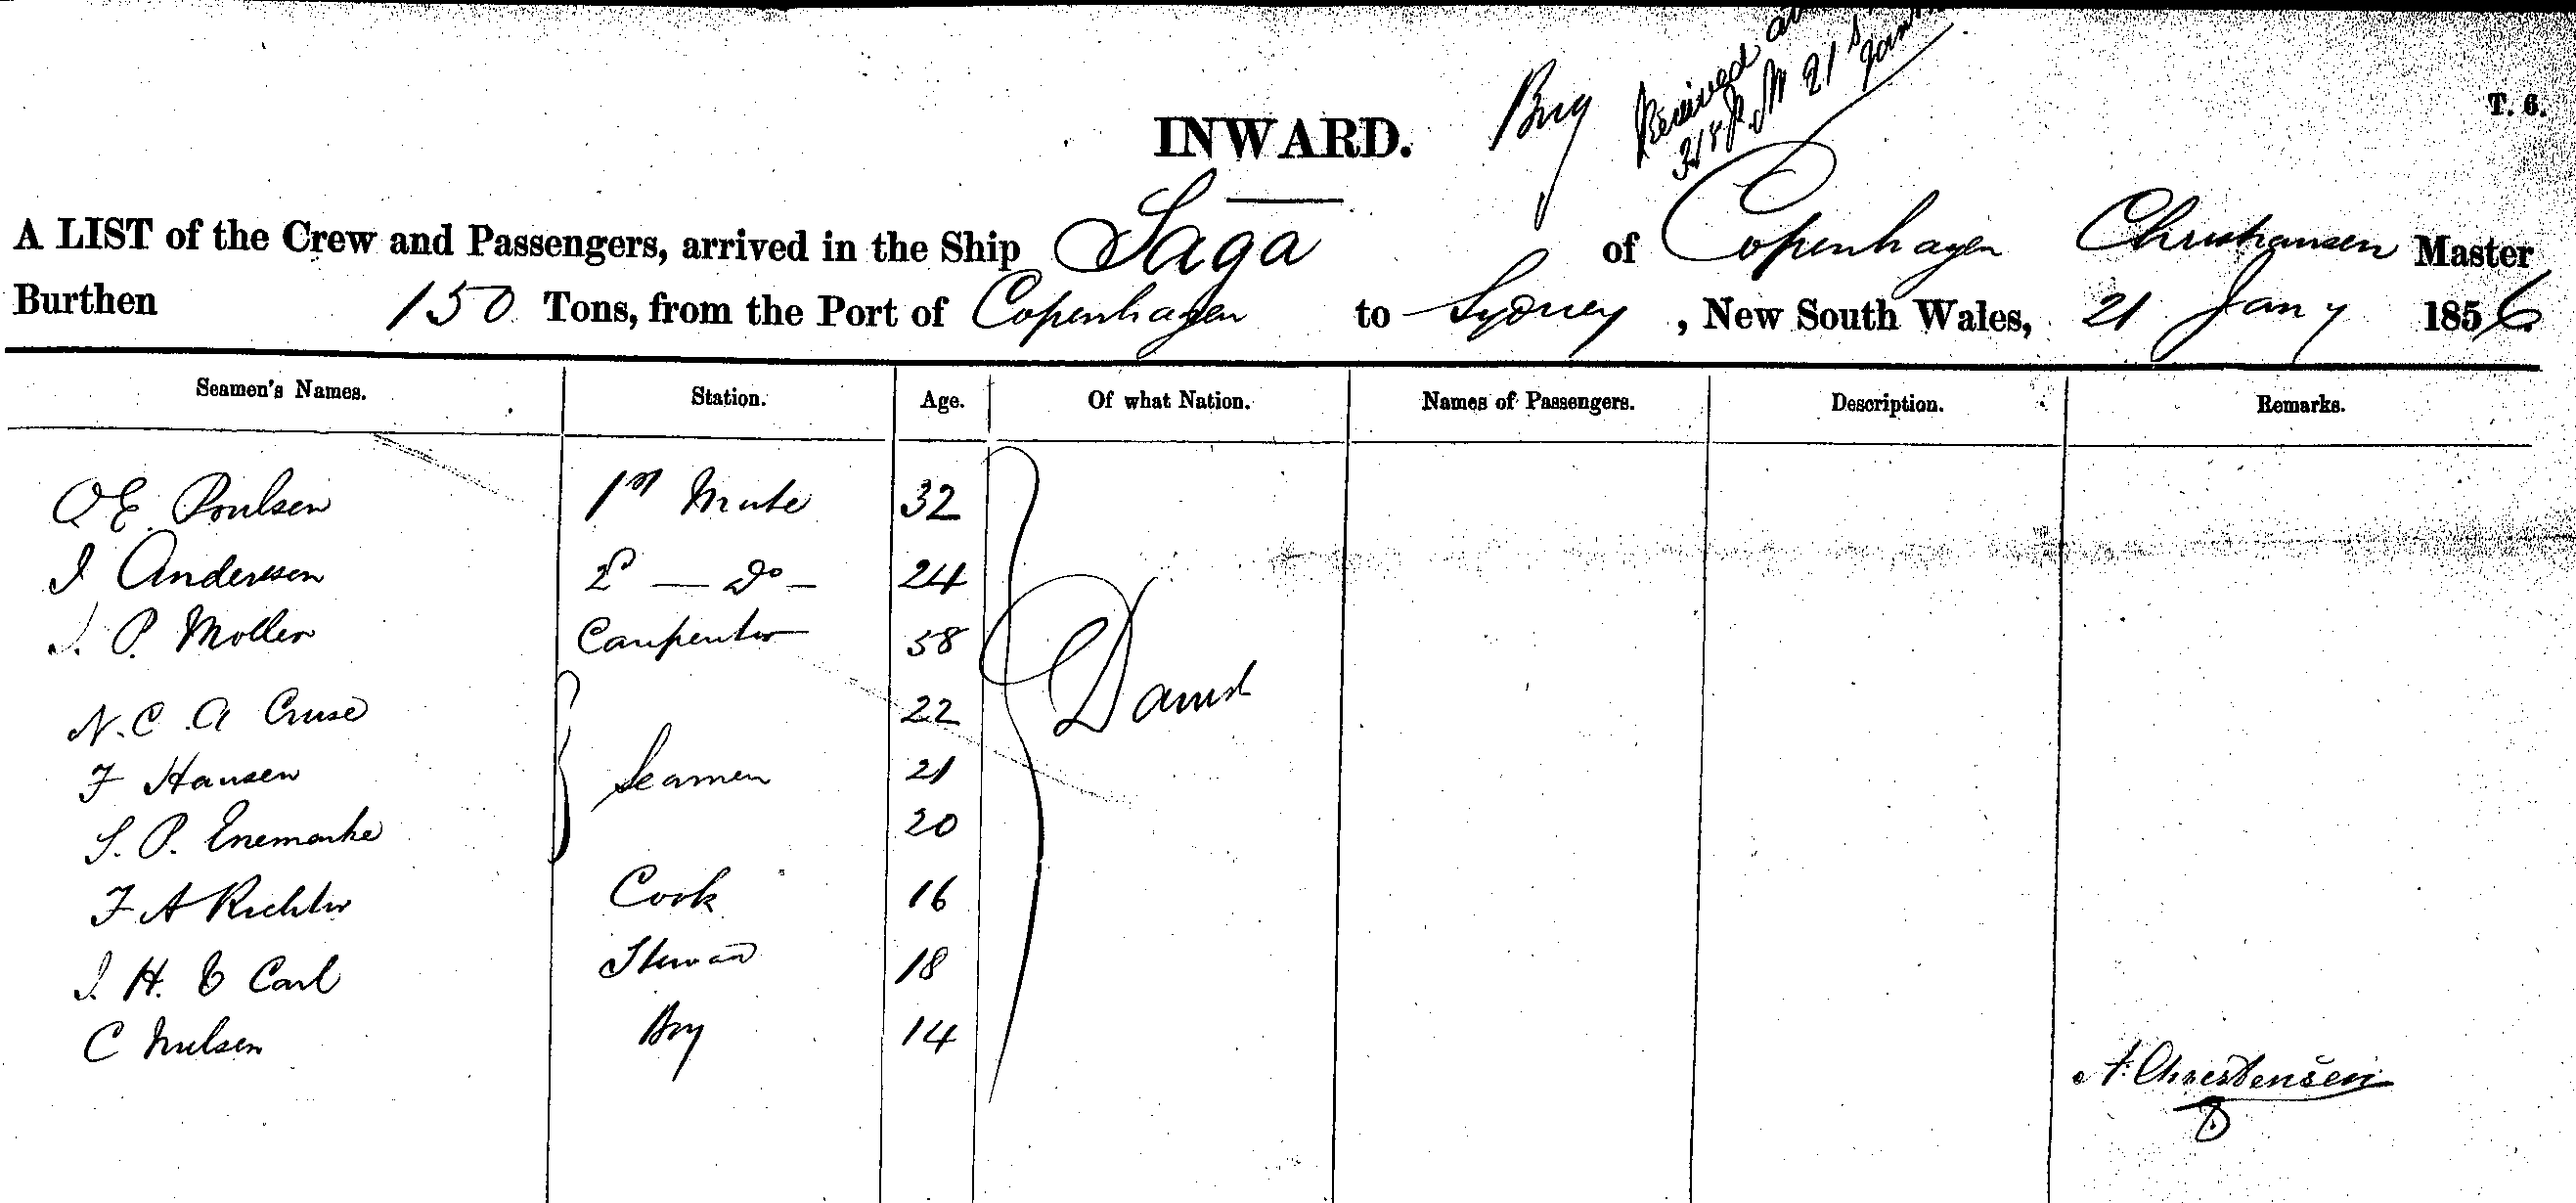 T. 6.
Brig
Received at
3/8 P.M 21st Jan
INWARD.
A LIST of the Crew and Passengers, arrived in the Ship Saga of Copenhagen Christiansen Master
Burthen 150 Tons, from the Port of Copenhagen to Sydney, New South Wales, 21 Jany 1856.
Seamen's Names. Station. Age. Of what Nation. Names of Passengers. Description. Remarks.
O E. Poulsen 1st Mate 32
J Andersen 2d — Do — 24
J. P. Moller Carpenter 38
N. C. A Cruse 22 Danish
F Hansen Seamen 21
S. P. Enemarke 20
F A Richter Cook 16
J. H. C Carl Steward 18
C Nielsen Boy 14
A. Christensen